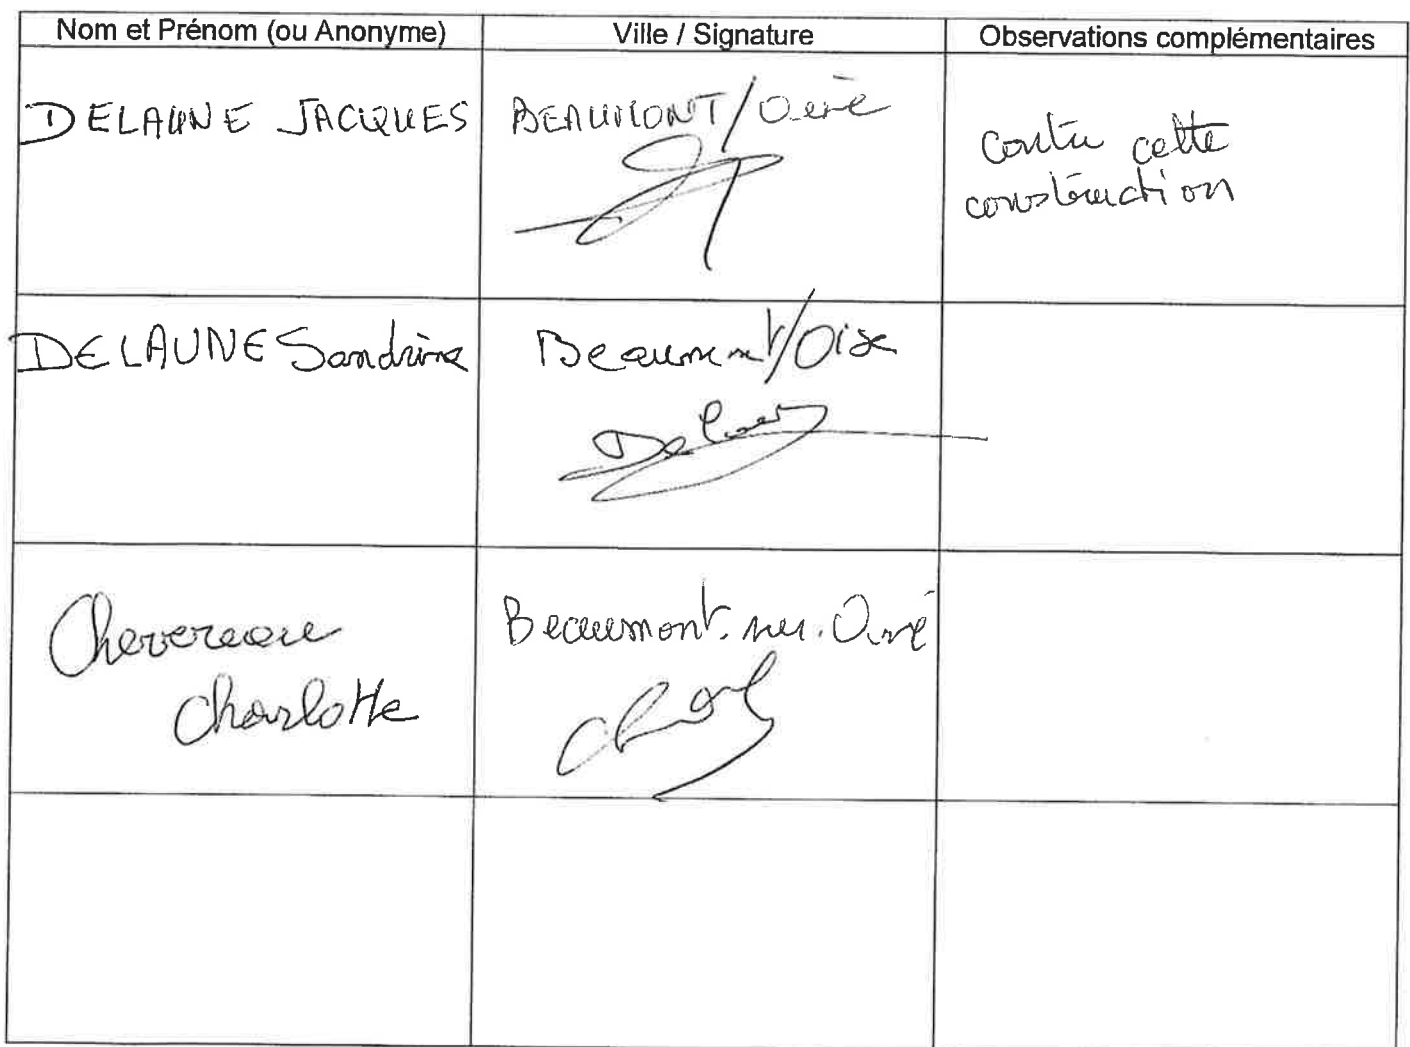 Nom et Prénom (ou Anonyme) Ville / Signature Observations complémentaires
DELAUNE JACQUES BEAUMONT/Oise contre cette
construction
DELAUNE Sandrine Beaumont/Oise
Chevereau Beaumont.sur.Oise
Charlotte